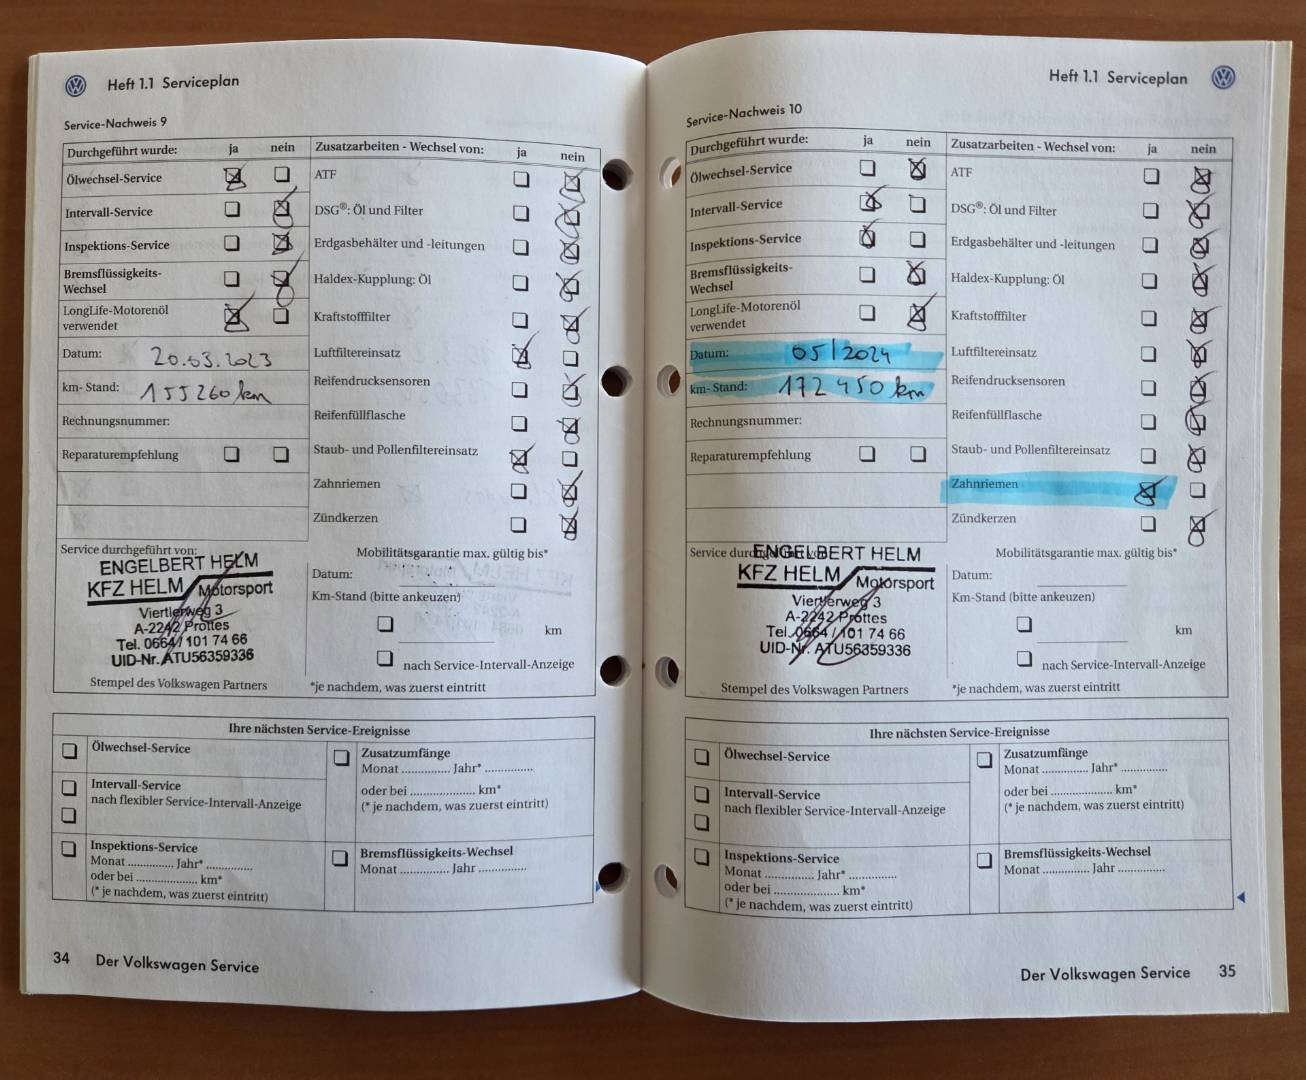 Heft 1.1 Serviceplan
Service-Nachweis 9
Durchgeführt wurde: ja nein
Ölwechsel-Service
Intervall-Service
Inspektions-Service
Bremsflüssigkeits-
Wechsel
LongLife-Motorenöl
verwendet
Datum: 20.03.2023
km- Stand: 155260 km
Rechnungsnummer:
Reparaturempfehlung
Zusatzarbeiten - Wechsel von: ja nein
ATF
DSG®: Öl und Filter
Erdgasbehälter und -leitungen
Haldex-Kupplung: Öl
Kraftstofffilter
Luftfiltereinsatz
Reifendrucksensoren
Reifenfüllflasche
Staub- und Pollenfiltereinsatz
Zahnriemen
Zündkerzen
Service durchgeführt von:
ENGELBERT HELM
KFZ HELM Motorsport
Viertlerweg 3
A-2242 Prottes
Tel. 0664 / 101 74 66
UID-Nr. ATU56359336
Stempel des Volkswagen Partners
Mobilitätsgarantie max. gültig bis*
Datum:
Km-Stand (bitte ankeuzen)
km
nach Service-Intervall-Anzeige
*je nachdem, was zuerst eintritt
Ihre nächsten Service-Ereignisse
Ölwechsel-Service
Intervall-Service
nach flexibler Service-Intervall-Anzeige
Inspektions-Service
Monat ............... Jahr* ...............
oder bei ...................... km*
(* je nachdem, was zuerst eintritt)
Zusatzumfänge
Monat ............... Jahr* ...............
oder bei ...................... km*
(* je nachdem, was zuerst eintritt)
Bremsflüssigkeits-Wechsel
Monat ............... Jahr ...............
34 Der Volkswagen Service
Heft 1.1 Serviceplan
Service-Nachweis 10
Durchgeführt wurde: ja nein
Ölwechsel-Service
Intervall-Service
Inspektions-Service
Bremsflüssigkeits-
Wechsel
LongLife-Motorenöl
verwendet
Datum: 05/2024
km- Stand: 172 450 km
Rechnungsnummer:
Reparaturempfehlung
Zusatzarbeiten - Wechsel von: ja nein
ATF
DSG®: Öl und Filter
Erdgasbehälter und -leitungen
Haldex-Kupplung: Öl
Kraftstofffilter
Luftfiltereinsatz
Reifendrucksensoren
Reifenfüllflasche
Staub- und Pollenfiltereinsatz
Zahnriemen
Zündkerzen
Service durchgeführt von:
ENGELBERT HELM
KFZ HELM Motorsport
Viertlerweg 3
A-2242 Prottes
Tel. 0664 / 101 74 66
UID-Nr. ATU56359336
Stempel des Volkswagen Partners
Mobilitätsgarantie max. gültig bis*
Datum:
Km-Stand (bitte ankeuzen)
km
nach Service-Intervall-Anzeige
*je nachdem, was zuerst eintritt
Ihre nächsten Service-Ereignisse
Ölwechsel-Service
Intervall-Service
nach flexibler Service-Intervall-Anzeige
Inspektions-Service
Monat ............... Jahr* ...............
oder bei ...................... km*
(* je nachdem, was zuerst eintritt)
Zusatzumfänge
Monat ............... Jahr* ...............
oder bei ...................... km*
(* je nachdem, was zuerst eintritt)
Bremsflüssigkeits-Wechsel
Monat ............... Jahr ...............
Der Volkswagen Service 35